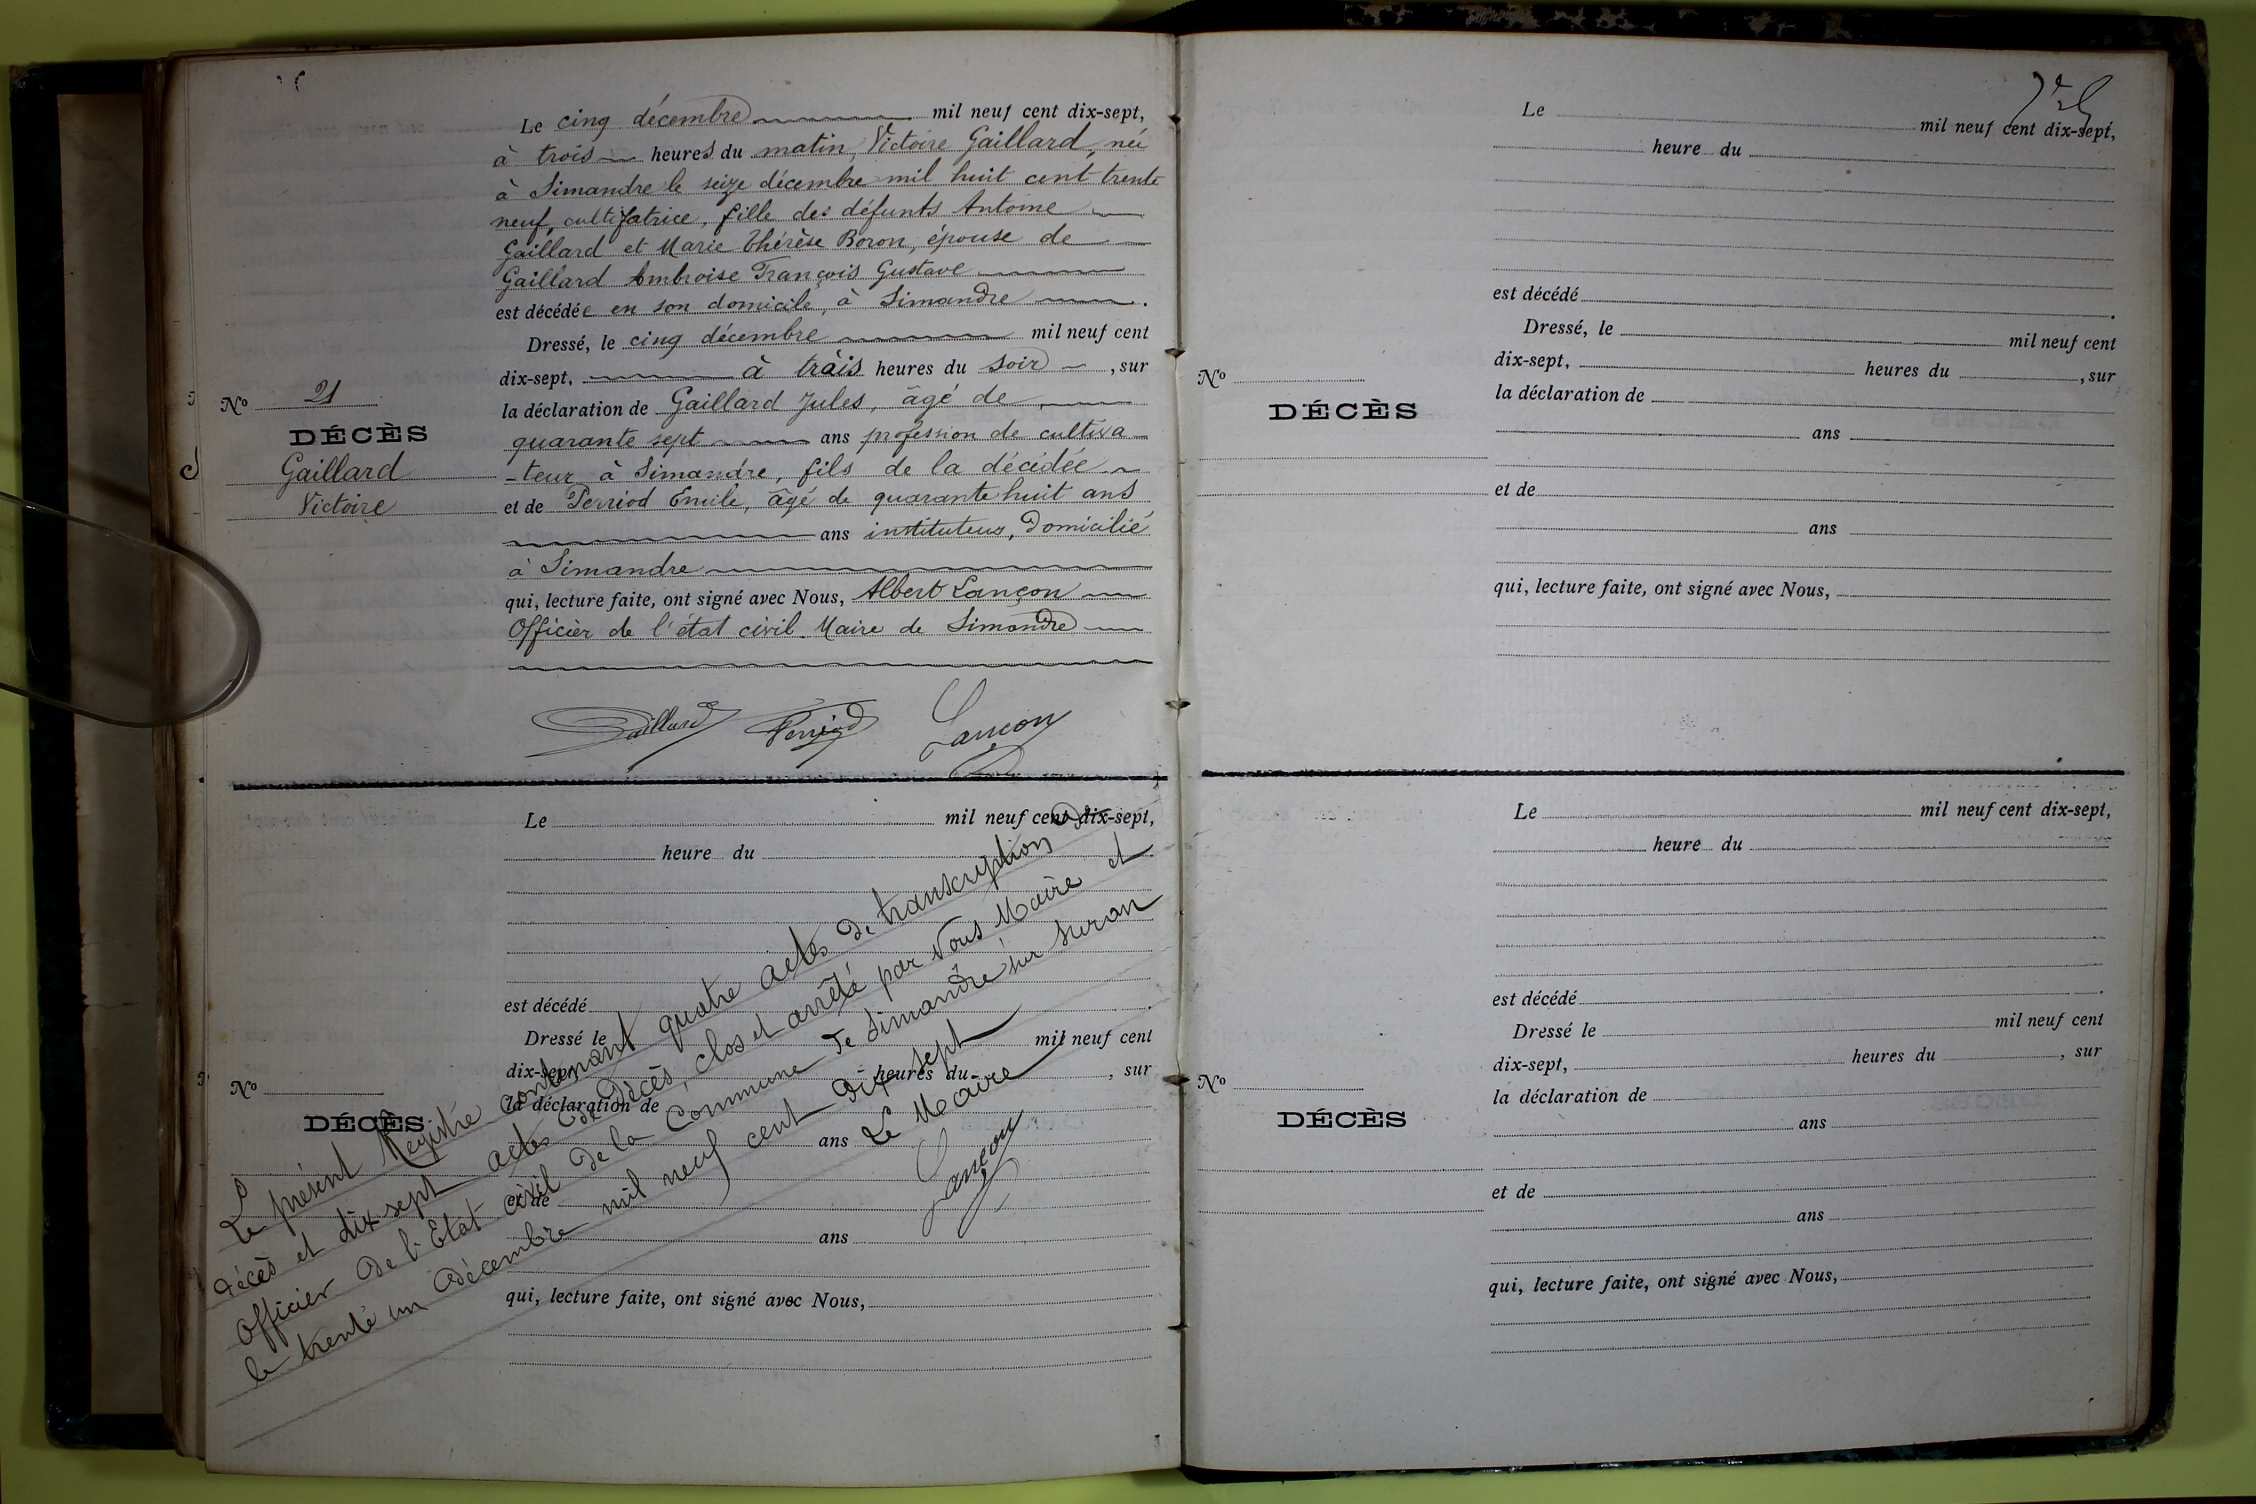 Le cinq décembre mil neuf cent dix-sept,
à trois heures du matin, Victoire Gaillard, née
à Simandre le seize décembre mil huit cent trente
neuf, cultivatrice, fille des défunts Antoine
Gaillard et Marie Thérèse Boron, épouse de
Gaillard Ambroise François Gustave
est décédée en son domicile, à Simandre .
Dressé, le cinq décembre mil neuf cent
dix-sept, à trois heures du soir , sur
la déclaration de Gaillard Jules, âgé de
quarante sept ans profession de cultiva
-teur à Simandre, fils de la décédée
et de Perriod Emile, âgé de quarante huit ans
ans instituteur, domicilié
à Simandre
qui, lecture faite, ont signé avec Nous, Albert Lançon
Officier de l'état civil. Maire de Simandre
Nº 21
DÉCÈS
Gaillard
Victoire
Gaillard Perriod Lançon
Le mil neuf cent dix-sept,
heure du
est décédé .
Dressé le mil neuf cent
dix-sept, heures du , sur
la déclaration de
ans
et de
ans
qui, lecture faite, ont signé avec Nous,
Nº
DÉCÈS
Le présent Registre contenant quatre actes de transcription de
décès et dix sept actes de décès, clos et arrêté par Nous Maire et
Officier de l'Etat civil de la Commune de Simandre sur Suran
le trente un décembre mil neuf cent dix sept
Le Maire
Lançon
Le mil neuf cent dix-sept,
heure du
est décédé .
Dressé, le mil neuf cent
dix-sept, heures du , sur
la déclaration de
ans
et de
ans
qui, lecture faite, ont signé avec Nous,
Nº
DÉCÈS
Le mil neuf cent dix-sept,
heure du
est décédé .
Dressé le mil neuf cent
dix-sept, heures du , sur
la déclaration de
ans
et de
ans
qui, lecture faite, ont signé avec Nous,
Nº
DÉCÈS